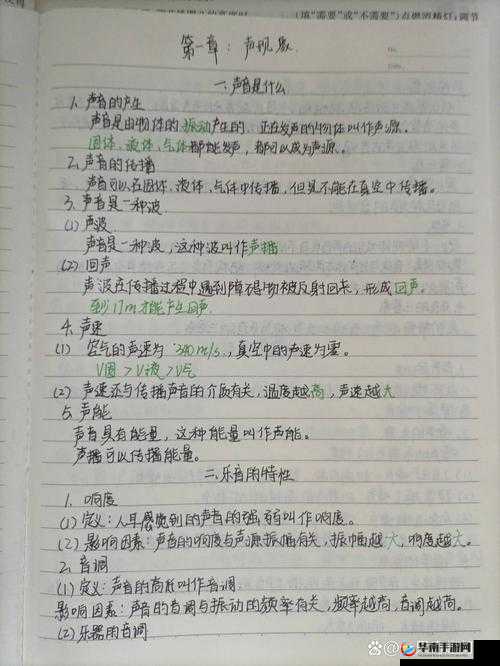 (填"需要"或"不需要")点燃酒精灯;调节
第一章:声现象
No.
Date
一.声音是什么
1.声音的产生
声音是由物体的振动产生的,正在发声的物体叫作声源。
固体、液体、气体都能发声,都可以成为声源。
2.声音的传播
声音可以在固体、液体、气体中传播,但是不能在真空中传播。
3.声音是一种波
(1)声波
声音是一种波,这种波叫作声播
(2)回声
声波在传播过程中遇到障碍物被反射回来,形成回声。
至少17m才能产生回声
4.声速
(1)空气的声速为340m/s,真空中的声速为零。
V固>V液>V气
(2)声速还与传播声音的介质有关,温度越高,声速越大
5.声能
声音具有能量,这种能量叫作声能。
声播可以传播能量。
二.乐音的特性
1.响度
(1)定义:人耳感觉到的声音的强弱叫作响度。
(2)影响因素:声音的响度与声源振幅有关,振幅越大,响度越大。
2.音调
(1)定义:声音的高低叫作音调
影响因素:声音的音调与振动的频率有关,频率越高,音调越高。
(2)乐器的音调
华南手游网